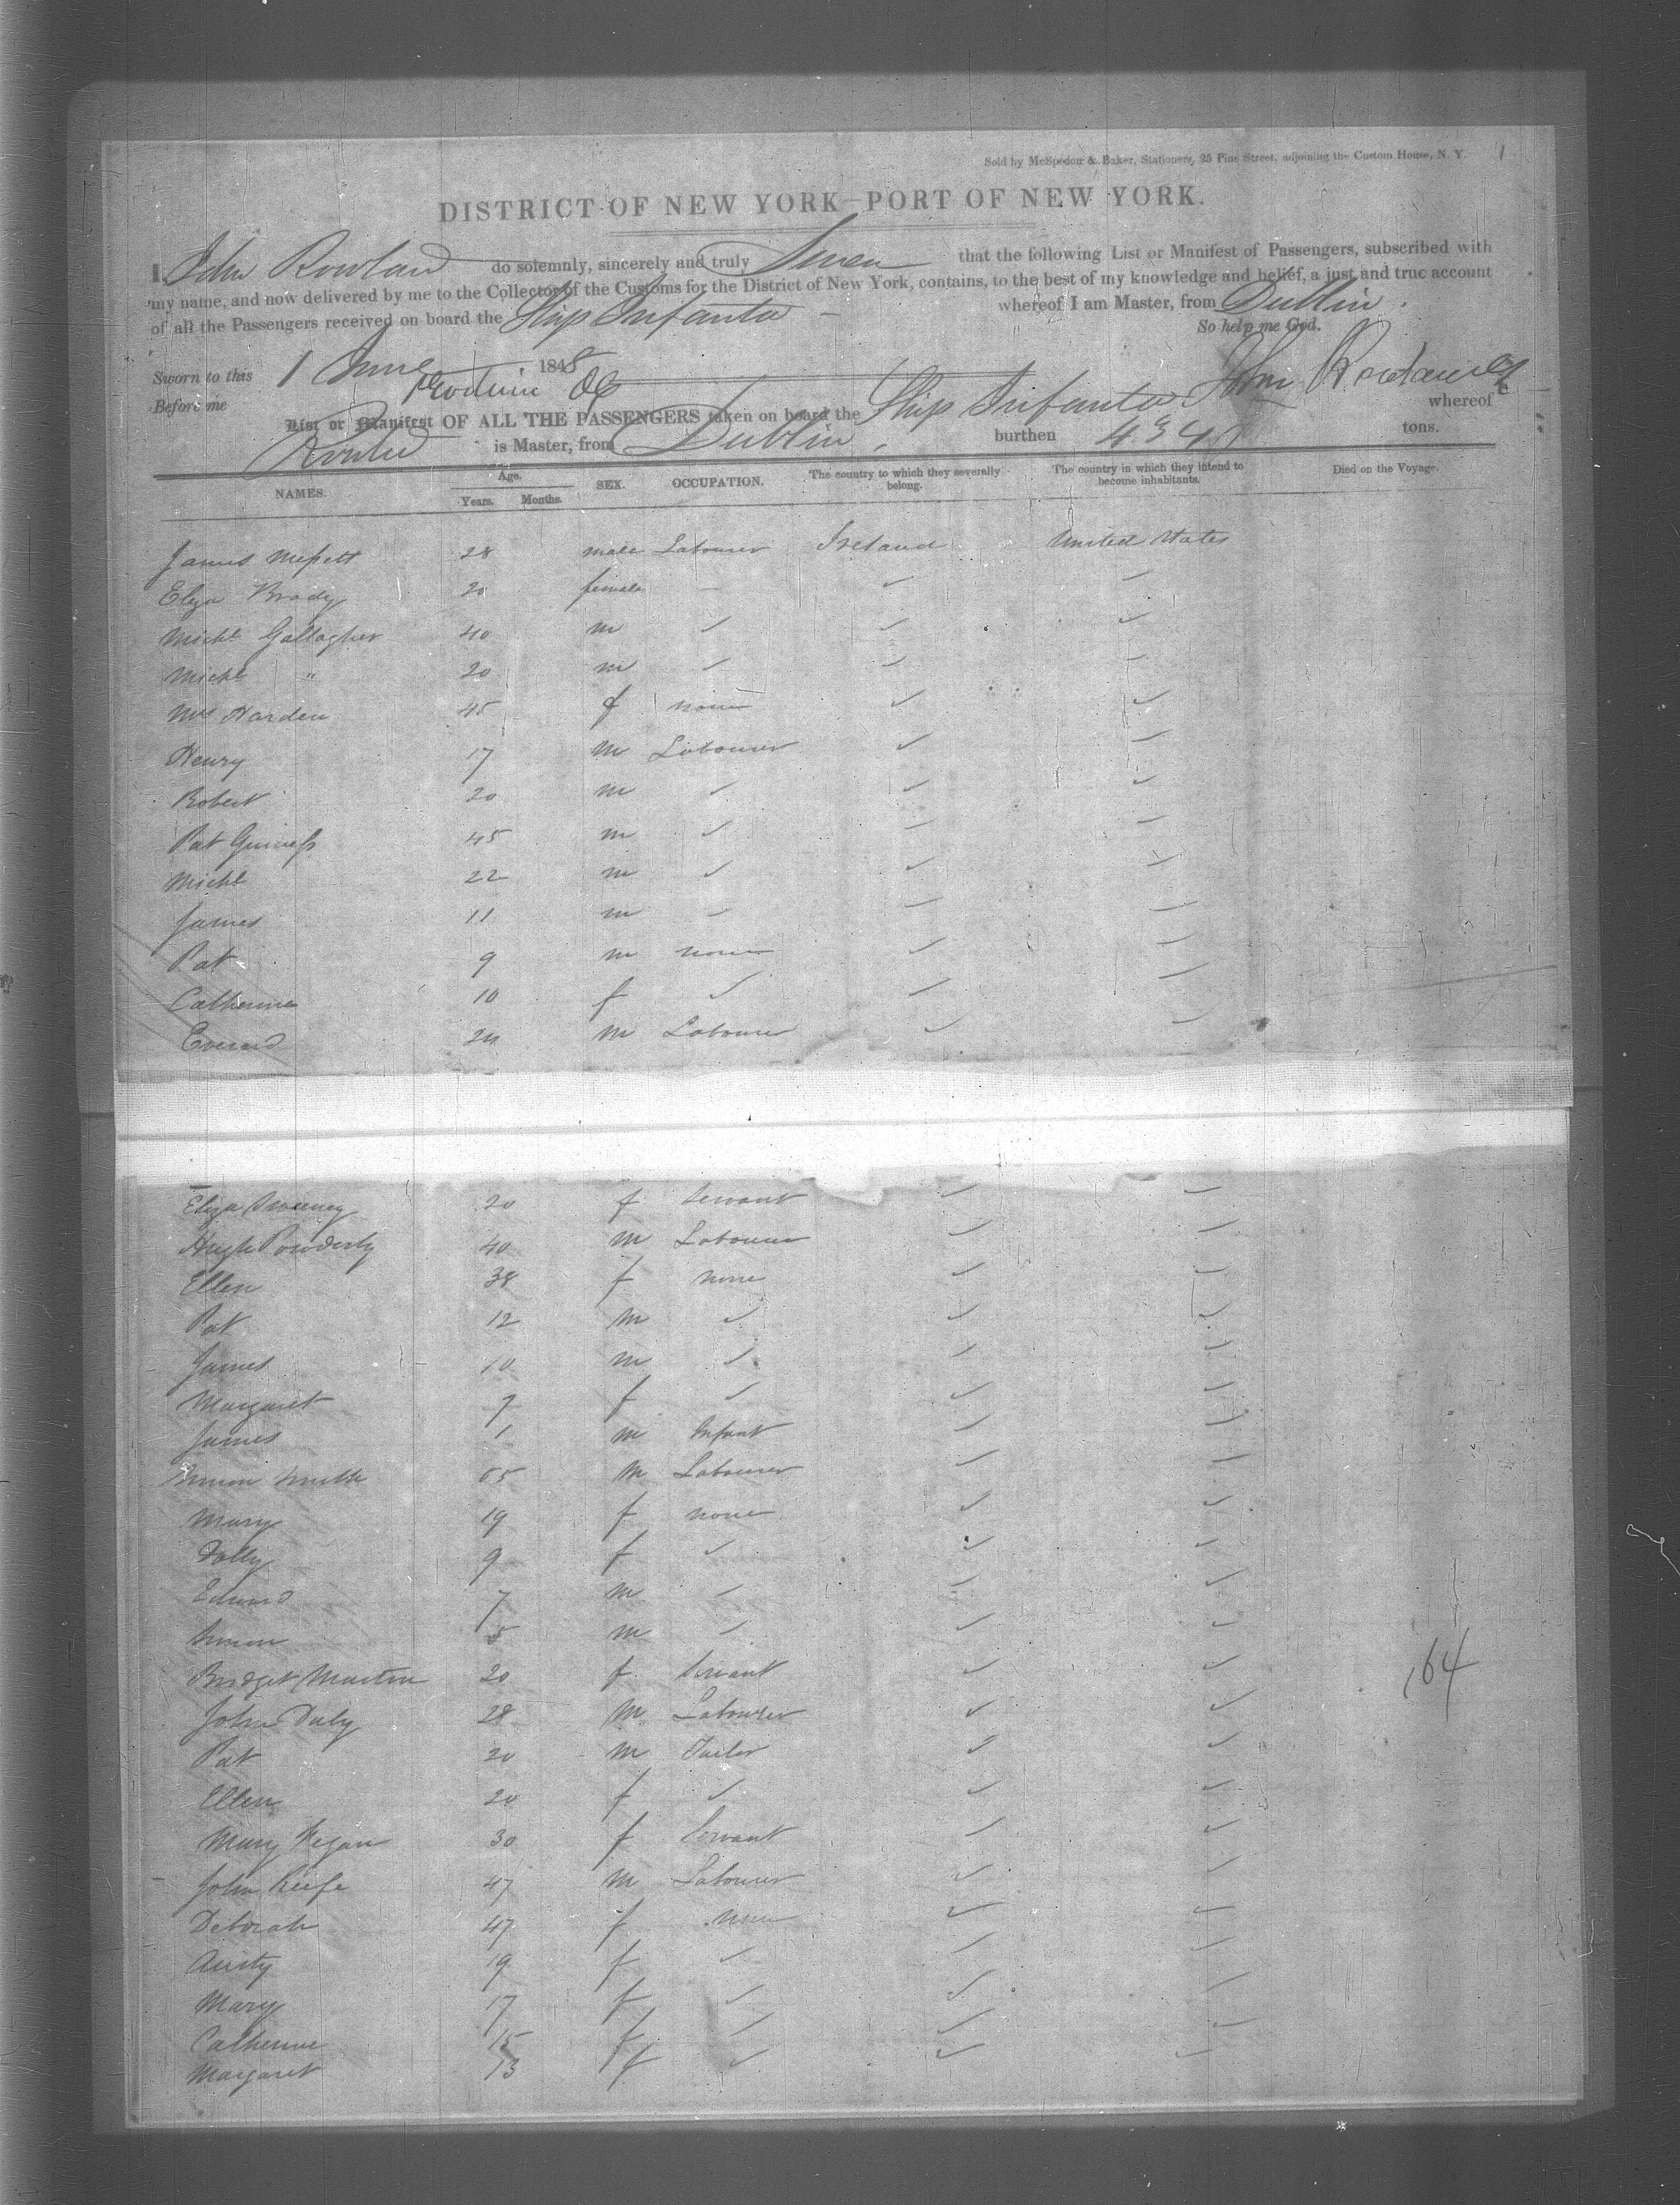 Sold by McSpedon & Baker, Stationers, 25 Pine Street, adjoining the Custom House, N. Y. 1
DISTRICT OF NEW YORK—PORT OF NEW YORK.
I, John Rowland do solemnly, sincerely and truly Swear that the following List or Manifest of Passengers, subscribed with
my name, and now delivered by me to the Collector of the Customs for the District of New York, contains, to the best of my knowledge and belief, a just and true account
of all the Passengers received on board the Ship Infanta whereof I am Master, from Dublin.
So help me God.
Sworn to this 1 June 1848
Before me John
List or Manifest OF ALL THE PASSENGERS taken on board the Ship Infanta whereof
is Master, from Dublin, burthen tons.
NAMES. Age. Years. Months. SEX. OCCUPATION. The country to which they severally belong. The country in which they intend to become inhabitants. Died on the Voyage.
James 28 male Labourer Ireland United States
Eliza Brady 20 female —
Michl Gallagher 40 m ✓
Michl " 20 m ✓
Mrs Harden 45 f none
Henry 17 m Labourer
Robert 20 m ✓
Pat Guiness 45 m ✓
Michl 22 m ✓
James 11 m ✓
Pat 9 m none
Catherine 10 f ✓
Everard m Labourer
Eliza Sweeney 20 f Servant
Hugh Powderly 40 m Labourer
Ellen 38 f none
Pat 12 m ✓
James 10 m ✓
Margaret 7 f ✓
James 1 m Infant
Simon Smith m Labourer
Mary 19 f none
Dolly 9 f ✓
Edward 7 m ✓
Simon 5 m ✓
Bridget Martin 20 f Servant
164
John Daly 28 m Labourer
Pat 20 m Tailor
Ellen 20 f ✓
Mary Regan 30 f Servant
John Keefe 47 m Labourer
Deborah 47 f none
Austy 19 f ✓
Mary 17 f ✓
Catherine 15 f ✓
Margaret 13 f ✓